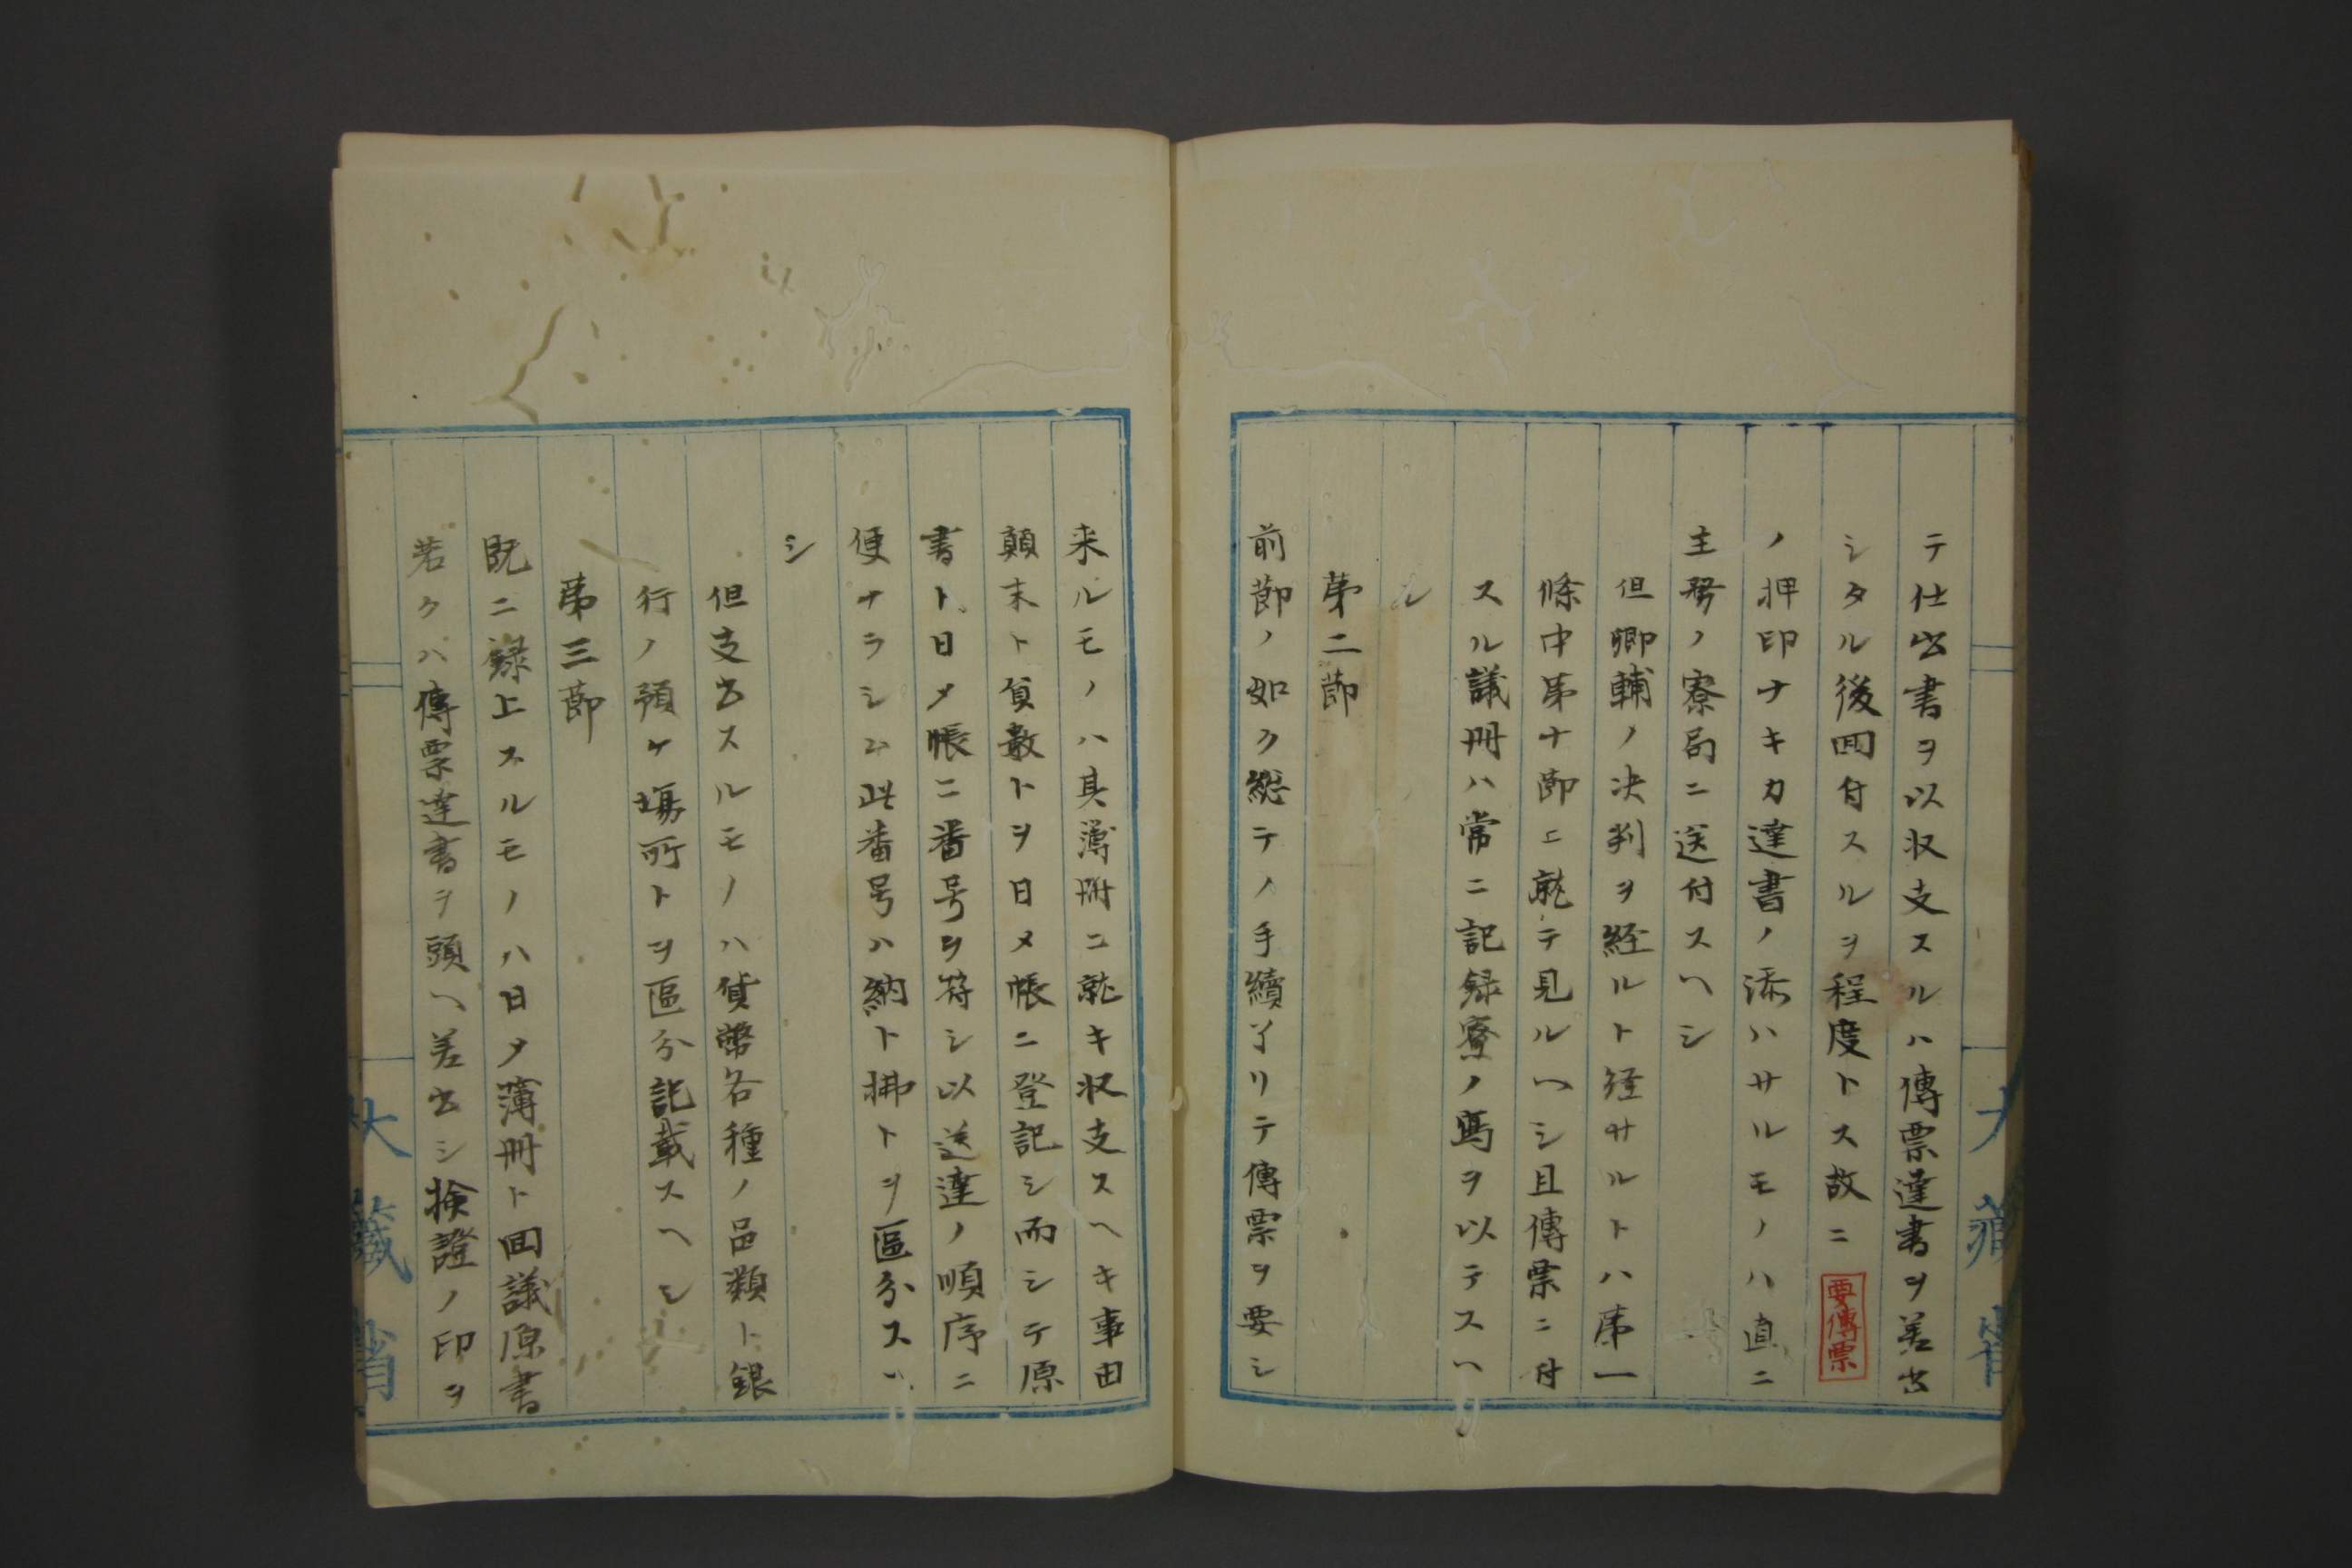 テ仕出書ヲ以収支スルハ傳票達書ヲ差出
シタル後回付スルヲ程度トス故ニ要傳票
ノ押印ナキカ達書ノ添ハサルモノハ直ニ
主務ノ寮局ニ送付スヘシ
但卿輔ノ决判ヲ経ルト経サルトハ第一
條中第十節ニ就テ見ルヘシ且傳票ニ付
スル議冊ハ常ニ記録寮ノ寫ヲ以テスヘ
シ
第二節
前節ノ如ク総テノ手續了リテ傳票ヲ要シ
来ルモノハ其簿冊ニ就キ収支スヘキ事由
顛末ト員数トヲ日メ帳ニ登記シ而シテ原
書ト日メ帳ニ番号ヲ符シ以送達ノ順序ニ
便ナラシム此番号ハ納ト拂トヲ區分スヘ
シ
但支出スルモノハ貨幣各種ノ品類ト銀
行ノ預ケ場所トヲ區分記載スヘシ
第三節
既ニ録上スルモノハ日メ簿冊ト回議原書
若クハ傳票達書ヲ頭ヘ差出シ検證ノ印ヲ
大藏省